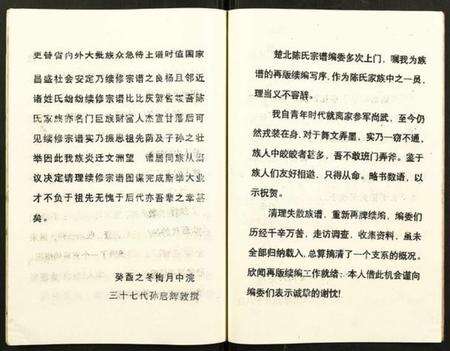 更替省内外大批族众急待上谱时值国家
昌盛社会安定乃续修宗谱之良杨且邻近
诸姓氏纷纷续修宗谱比比庆贺岂咬吾陈
氏家族亦名门巨族财富人杰岂甘落后可
见续修宗谱实乃振恩祖先荫及子孙之壮
举因此我族炎迁文洲望 诸居同族从
议决定请理续修宗谱图谋完成斯举大业
才不负于祖先无愧于后代亦吾辈之幸甚
矣。
癸酉之冬梅月中浣
三十七代孙启辉敦撰
楚北陈氏宗谱编委多次上门，嘱我为族
谱的再版续编写序，作为陈氏家族中之一员，
理当义不容辞。
我自青年时代就离家参军尚武，至今仍
然戎装在身，对于舞文弄墨，实乃一窍不通，
族人中皎皎者甚多，吾不敢班门弄斧。鉴于
族人们友好相邀，只得从命。略书数语，以
示祝贺。
清理失散族谱，重新再牌续编，编委们
历经千辛万苦，走访调查，收集资料，虽未
全部归纳载入，总算搞清了一个支系的概况。
欣闻再版续编工作就绪，本人借此机会谨向
编委们表示诚挚的谢忱！